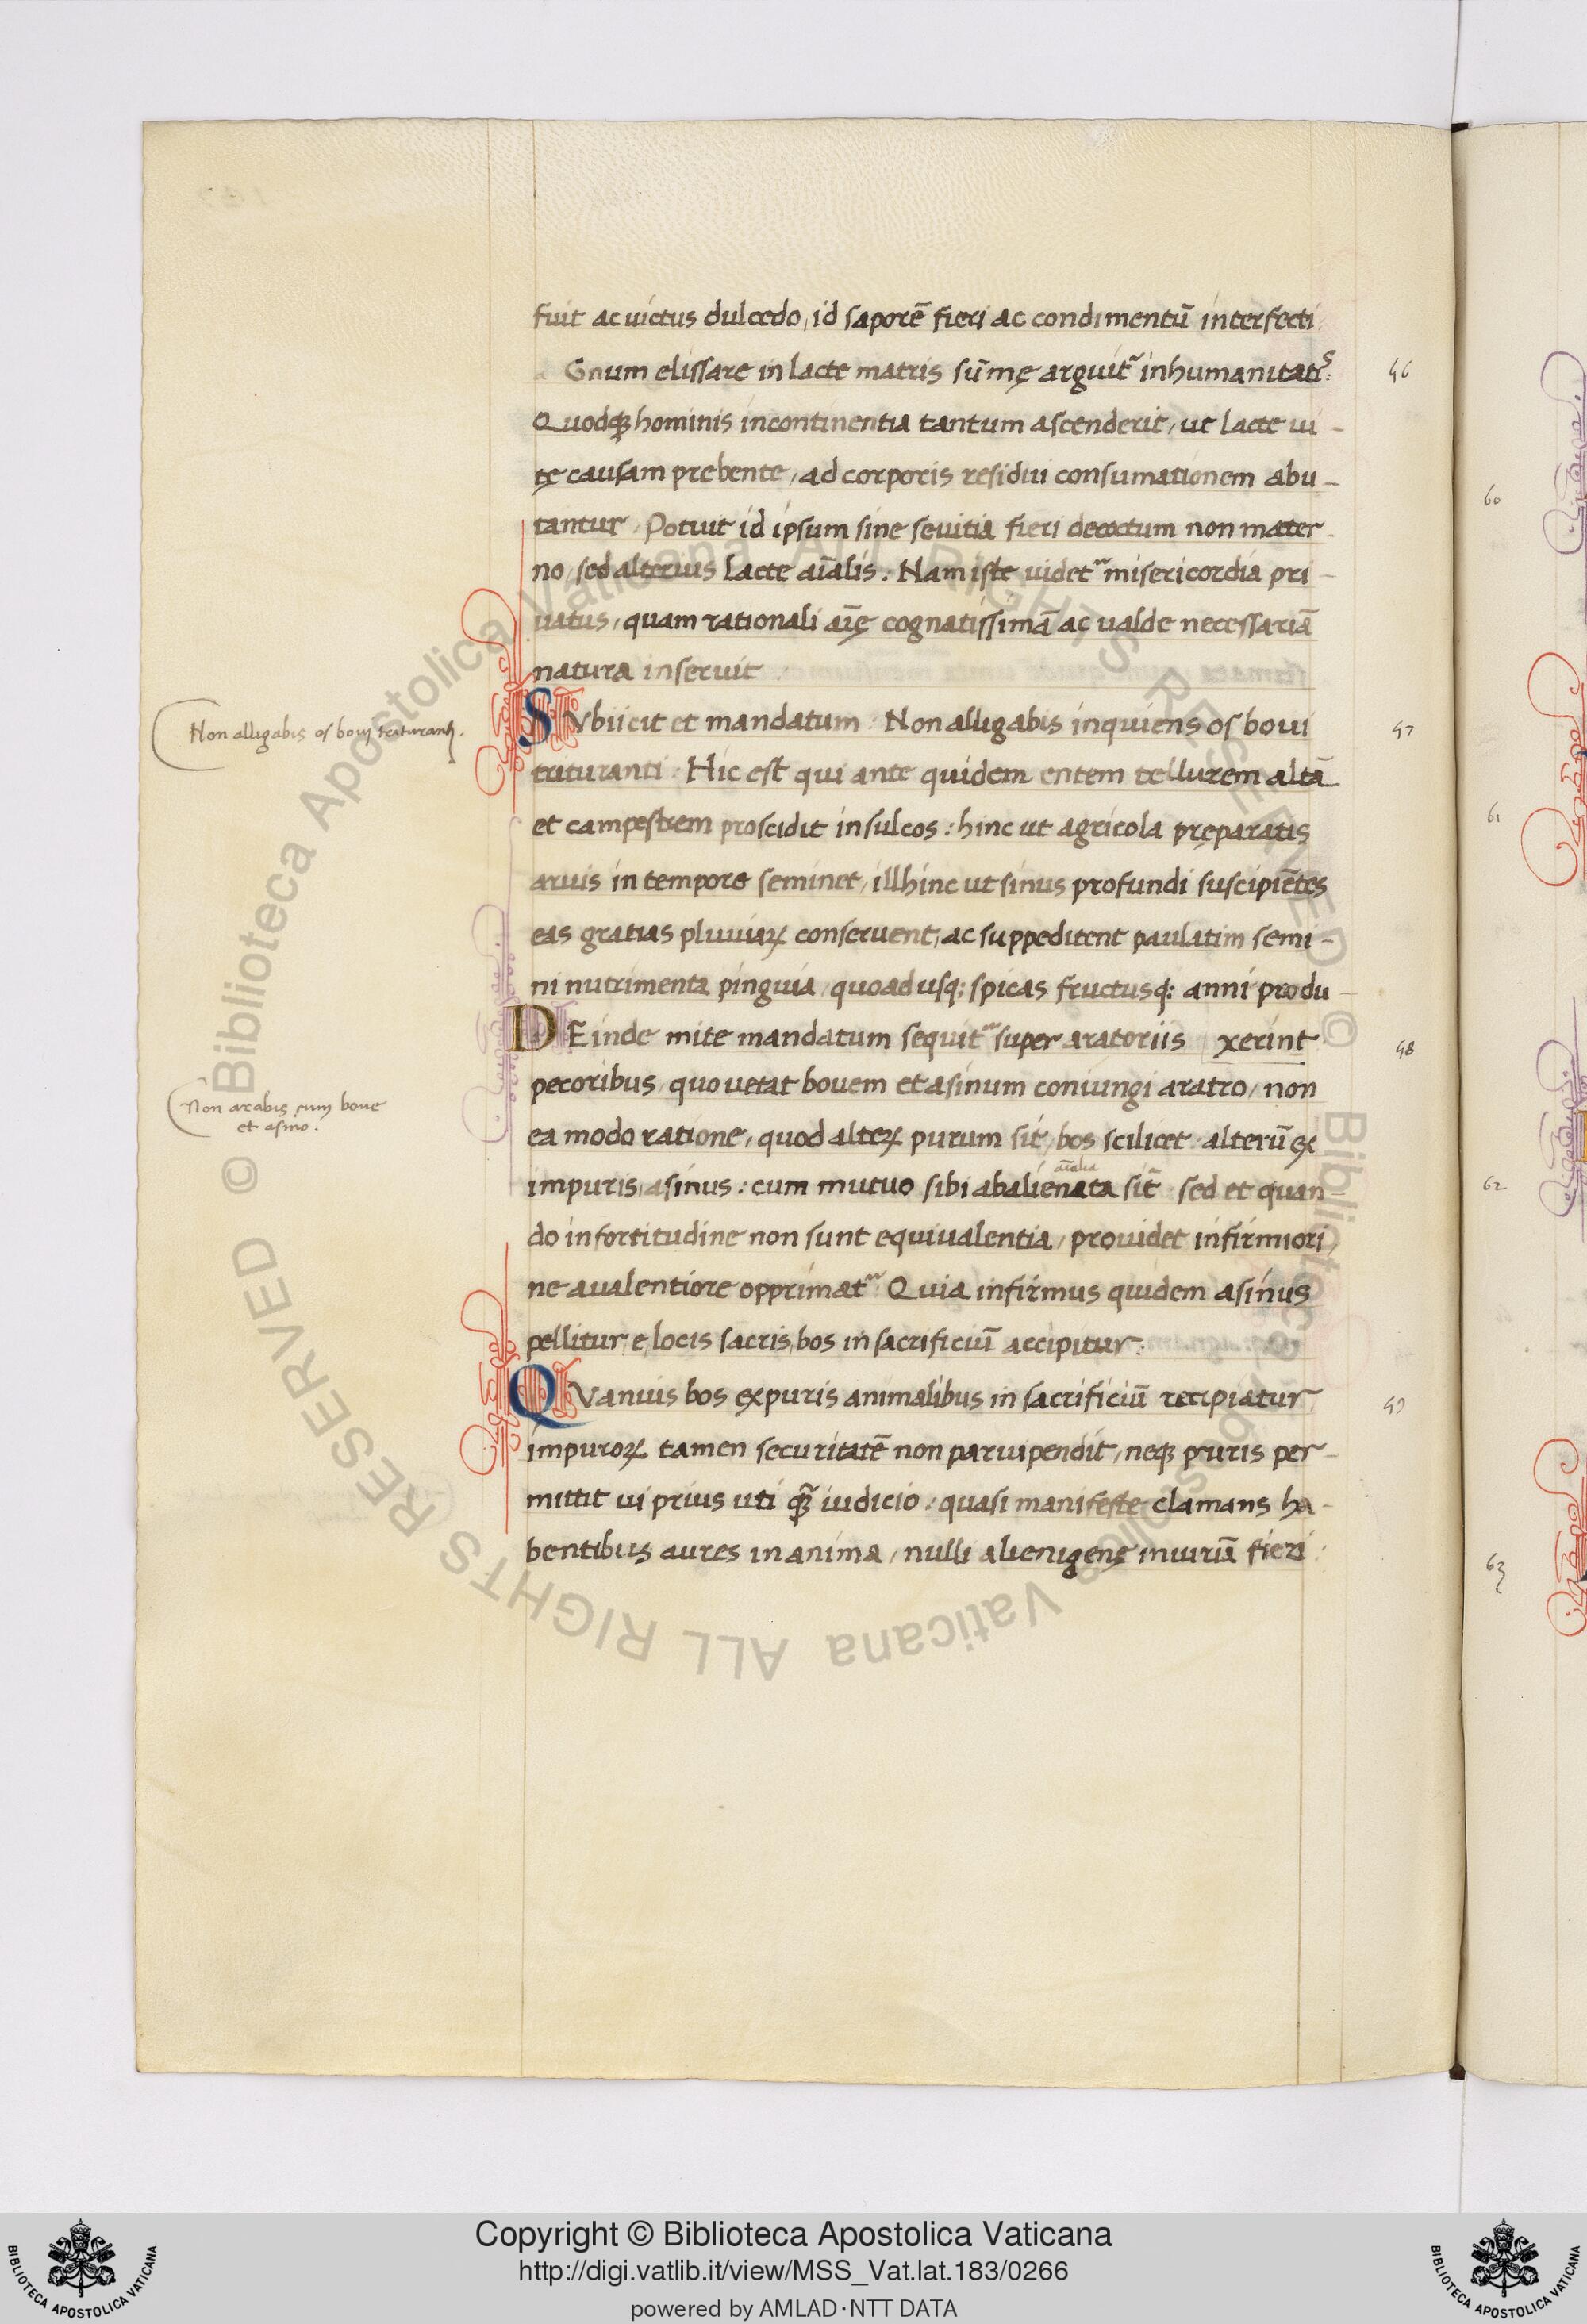 fuit ac uictus dulcedo, id saporē fieri ac condimentū interfecti
Gnum elissare in lacte matris sūmę arguit᷑ inhumanitatꝭ
Quodqꝫ hominis incontinentia tantum ascenderit, ut lacte ui-
tę causam prebente, ad corporis residui consumationem abu-
tantur. Potuit id ipsum sine seuitia fieri decoctum non mater-
no, sed alterius lacte aīalis: Nam iste uidet᷑ misericordia pri-
uatus, quam rationali aīę cognatissimā ac ualde necessariā
natura inseruit.
SVbiicit et mandatum. Non alligabis inquiens os boui
trituranti: Hic est qui ante quidem entem tellurem altā
et campestrem proscidit in sulcos: hinc ut agricola pręparatis
aruis in tempore seminet, illhinc ut sinus profundi suscipiētes
eas gratias pluuiaꝝ conseruent, ac suppeditent paulatim semi-
ni nutrimenta pinguia, quoad usq; spicas fructusq; anni produ-
DEinde mite mandatum sequit᷑ super aratoriis xerint
pecoribus, quo uetat bouem et asinum coniungi aratro, non
ea modo ratione, quod alteꝝ purum sit, bos scilicet. alterū ex
aīalia
impuris, asinus: cum mutuo sibi abalienata sīt sed et quan-
do in fortitudine non sunt equiualentia, prouidet infirmiori,
ne a ualentiore opprimat᷑. Quia infirmus quidem asinus
pellitur e, locis sacris, bos in sacrificiū accipitur.
QVanuis bos ex puris animalibus in sacrificiū recipiatur
impuroꝝ tamen securitatē non paruipendit, neqꝫ puris per-
mittit ui prius uti qꝫ̄ iudicio: quasi manifeste clamans ha-
bentibus aures in anima, nulli alienigenę iniuriā fieri
Non alligabis os boui triturantj.
Non arabis cum boue
et asino.
46
47
48
49
60
61
62
63
© Biblioteca Apostolica Vaticana ALL RIGHTS RESERVED
© Biblioteca Apostolica Vaticana ALL RIGHTS RESERVED
Copyright © Biblioteca Apostolica Vaticana
http://digi.vatlib.it/view/MSS_Vat.lat.183/0266
powered by AMLAD·NTT DATA
BIBLIOTECA APOSTOLICA VATICANA
BIBLIOTECA APOSTOLICA VATICANA